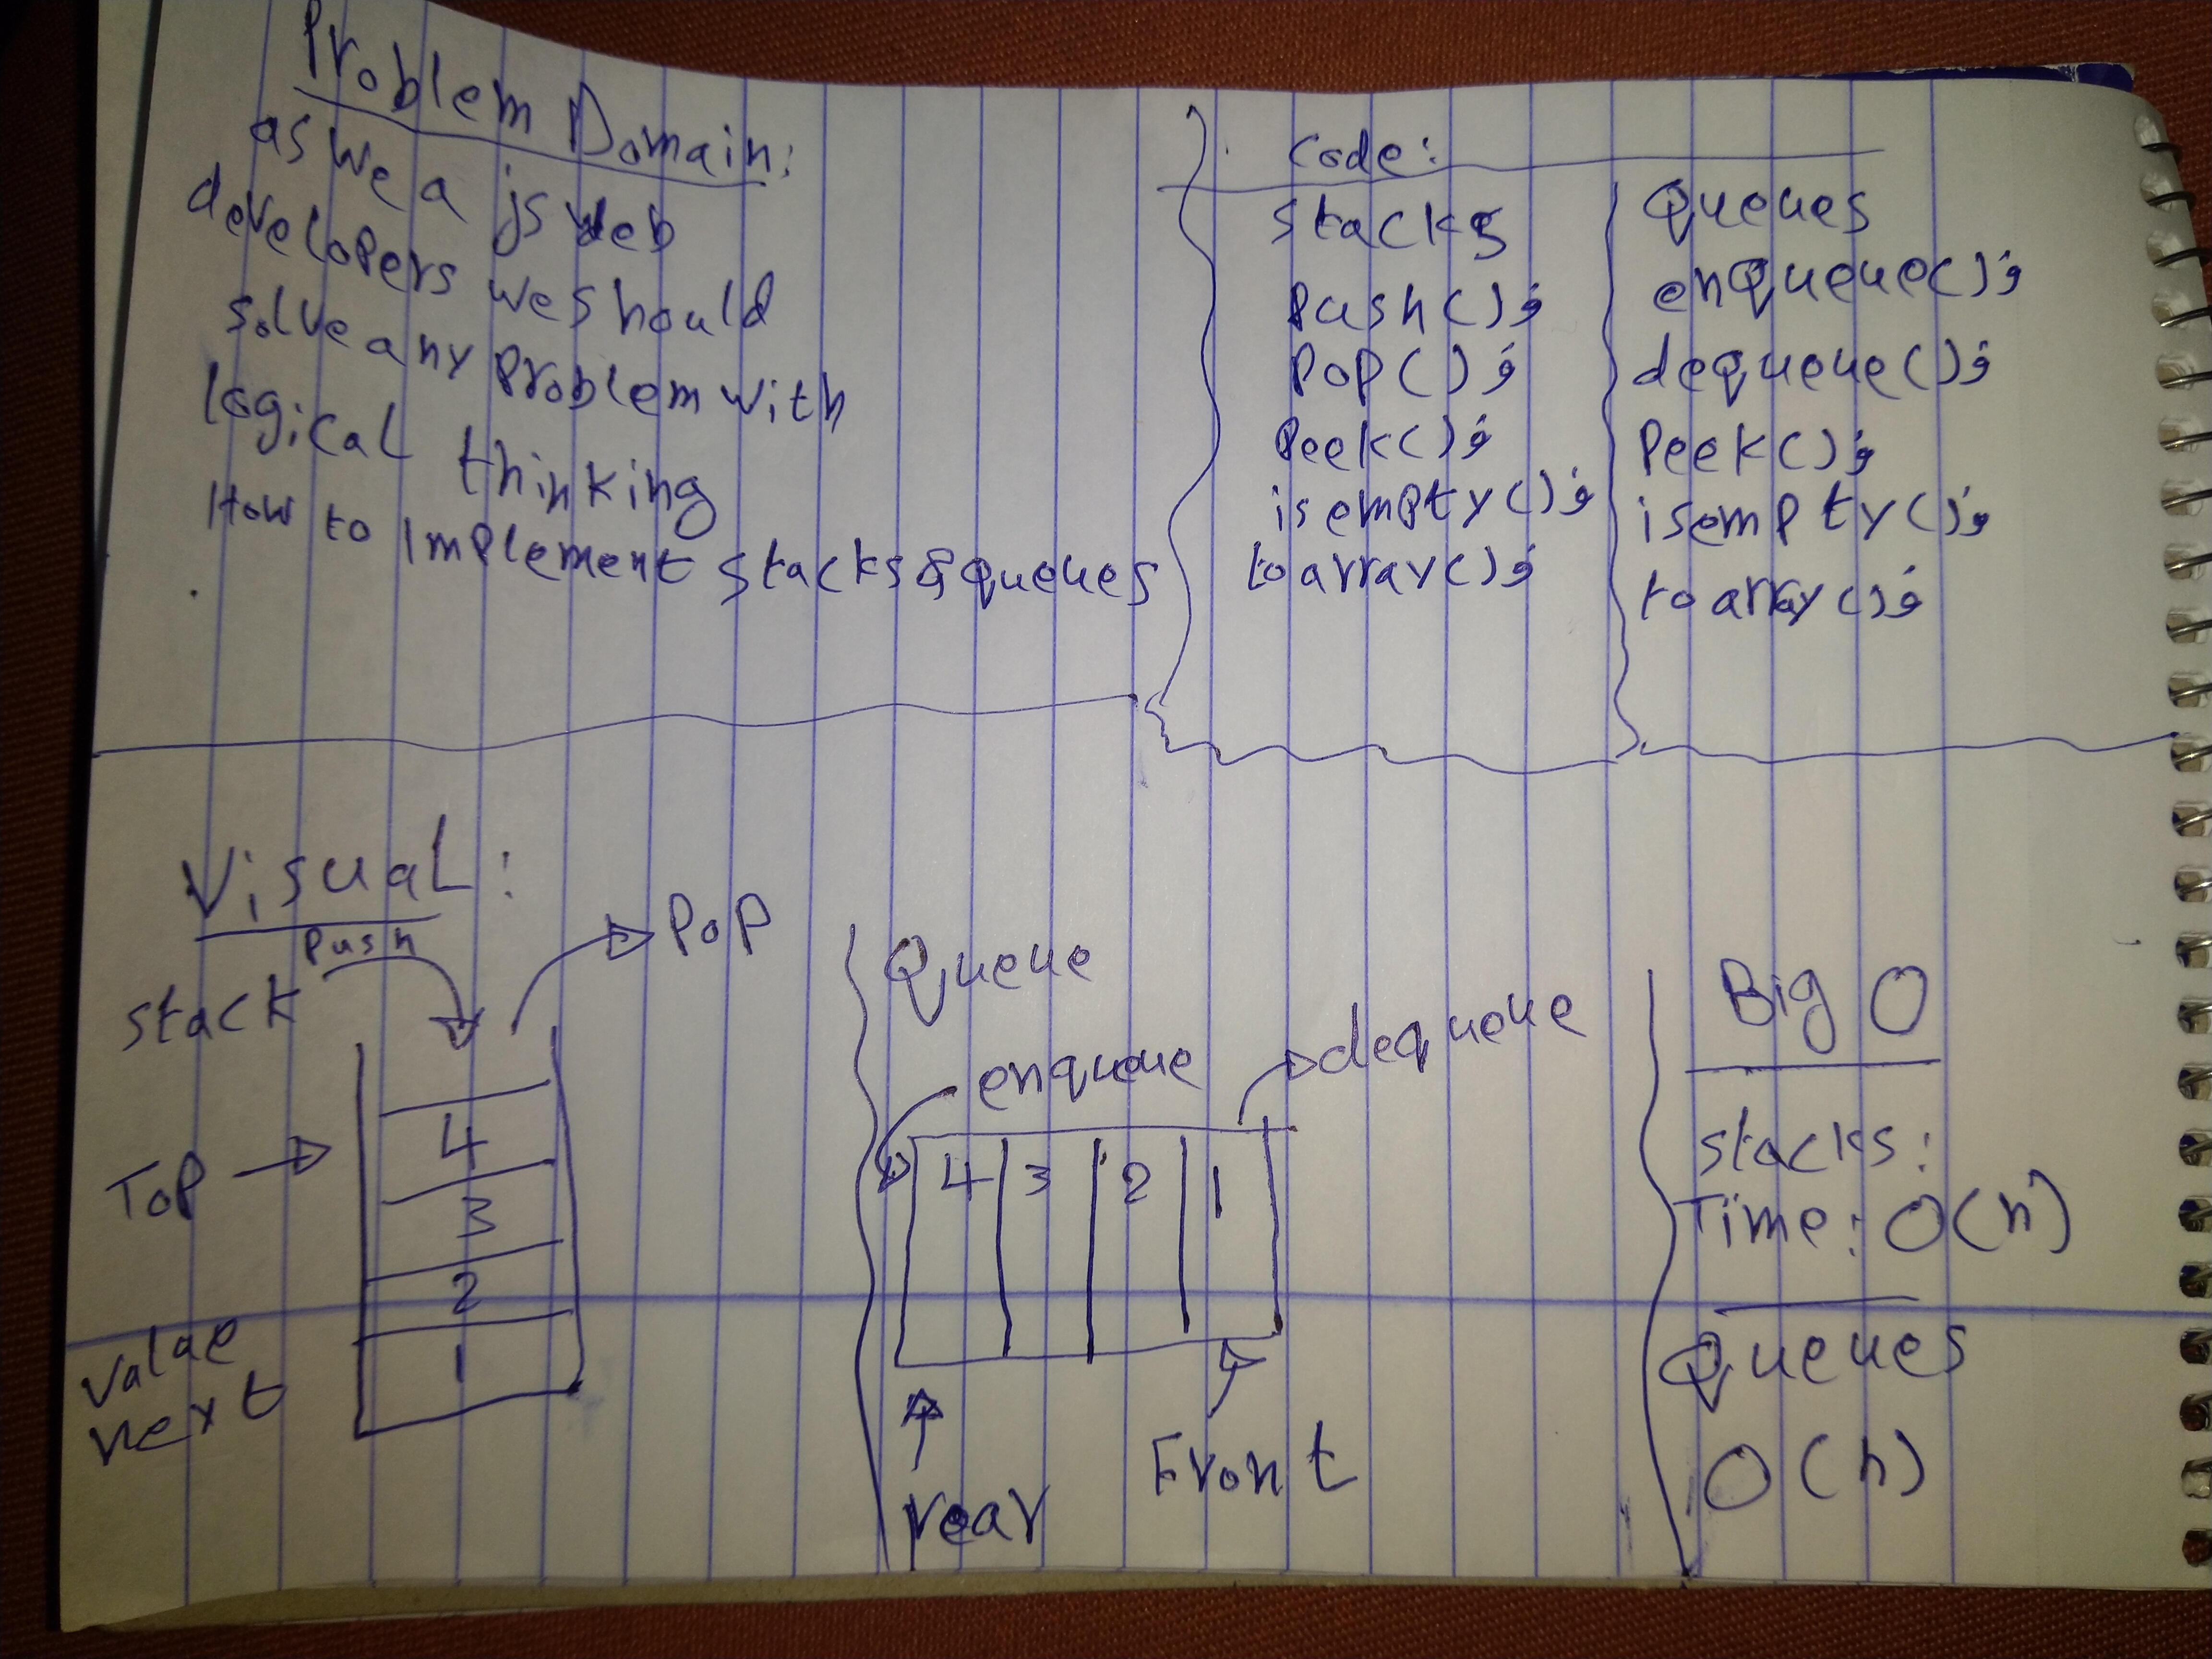 Problem Domain:
as we a js web
developers we should
solve any problem with
logical thinking
How to implement stacks & queues
code:
stacks
push();
pop();
peek();
isempty();
toarray();
Queues
enqueue();
dequeue();
peek();
isempty();
toarray();
Visual:
stack
push
pop
Top →
4
3
2
1
value
next
Queue
enqueue
dequeue
4 3 2 1
rear
Front
Big O
stacks:
Time: O(n)
Queues
O(n)